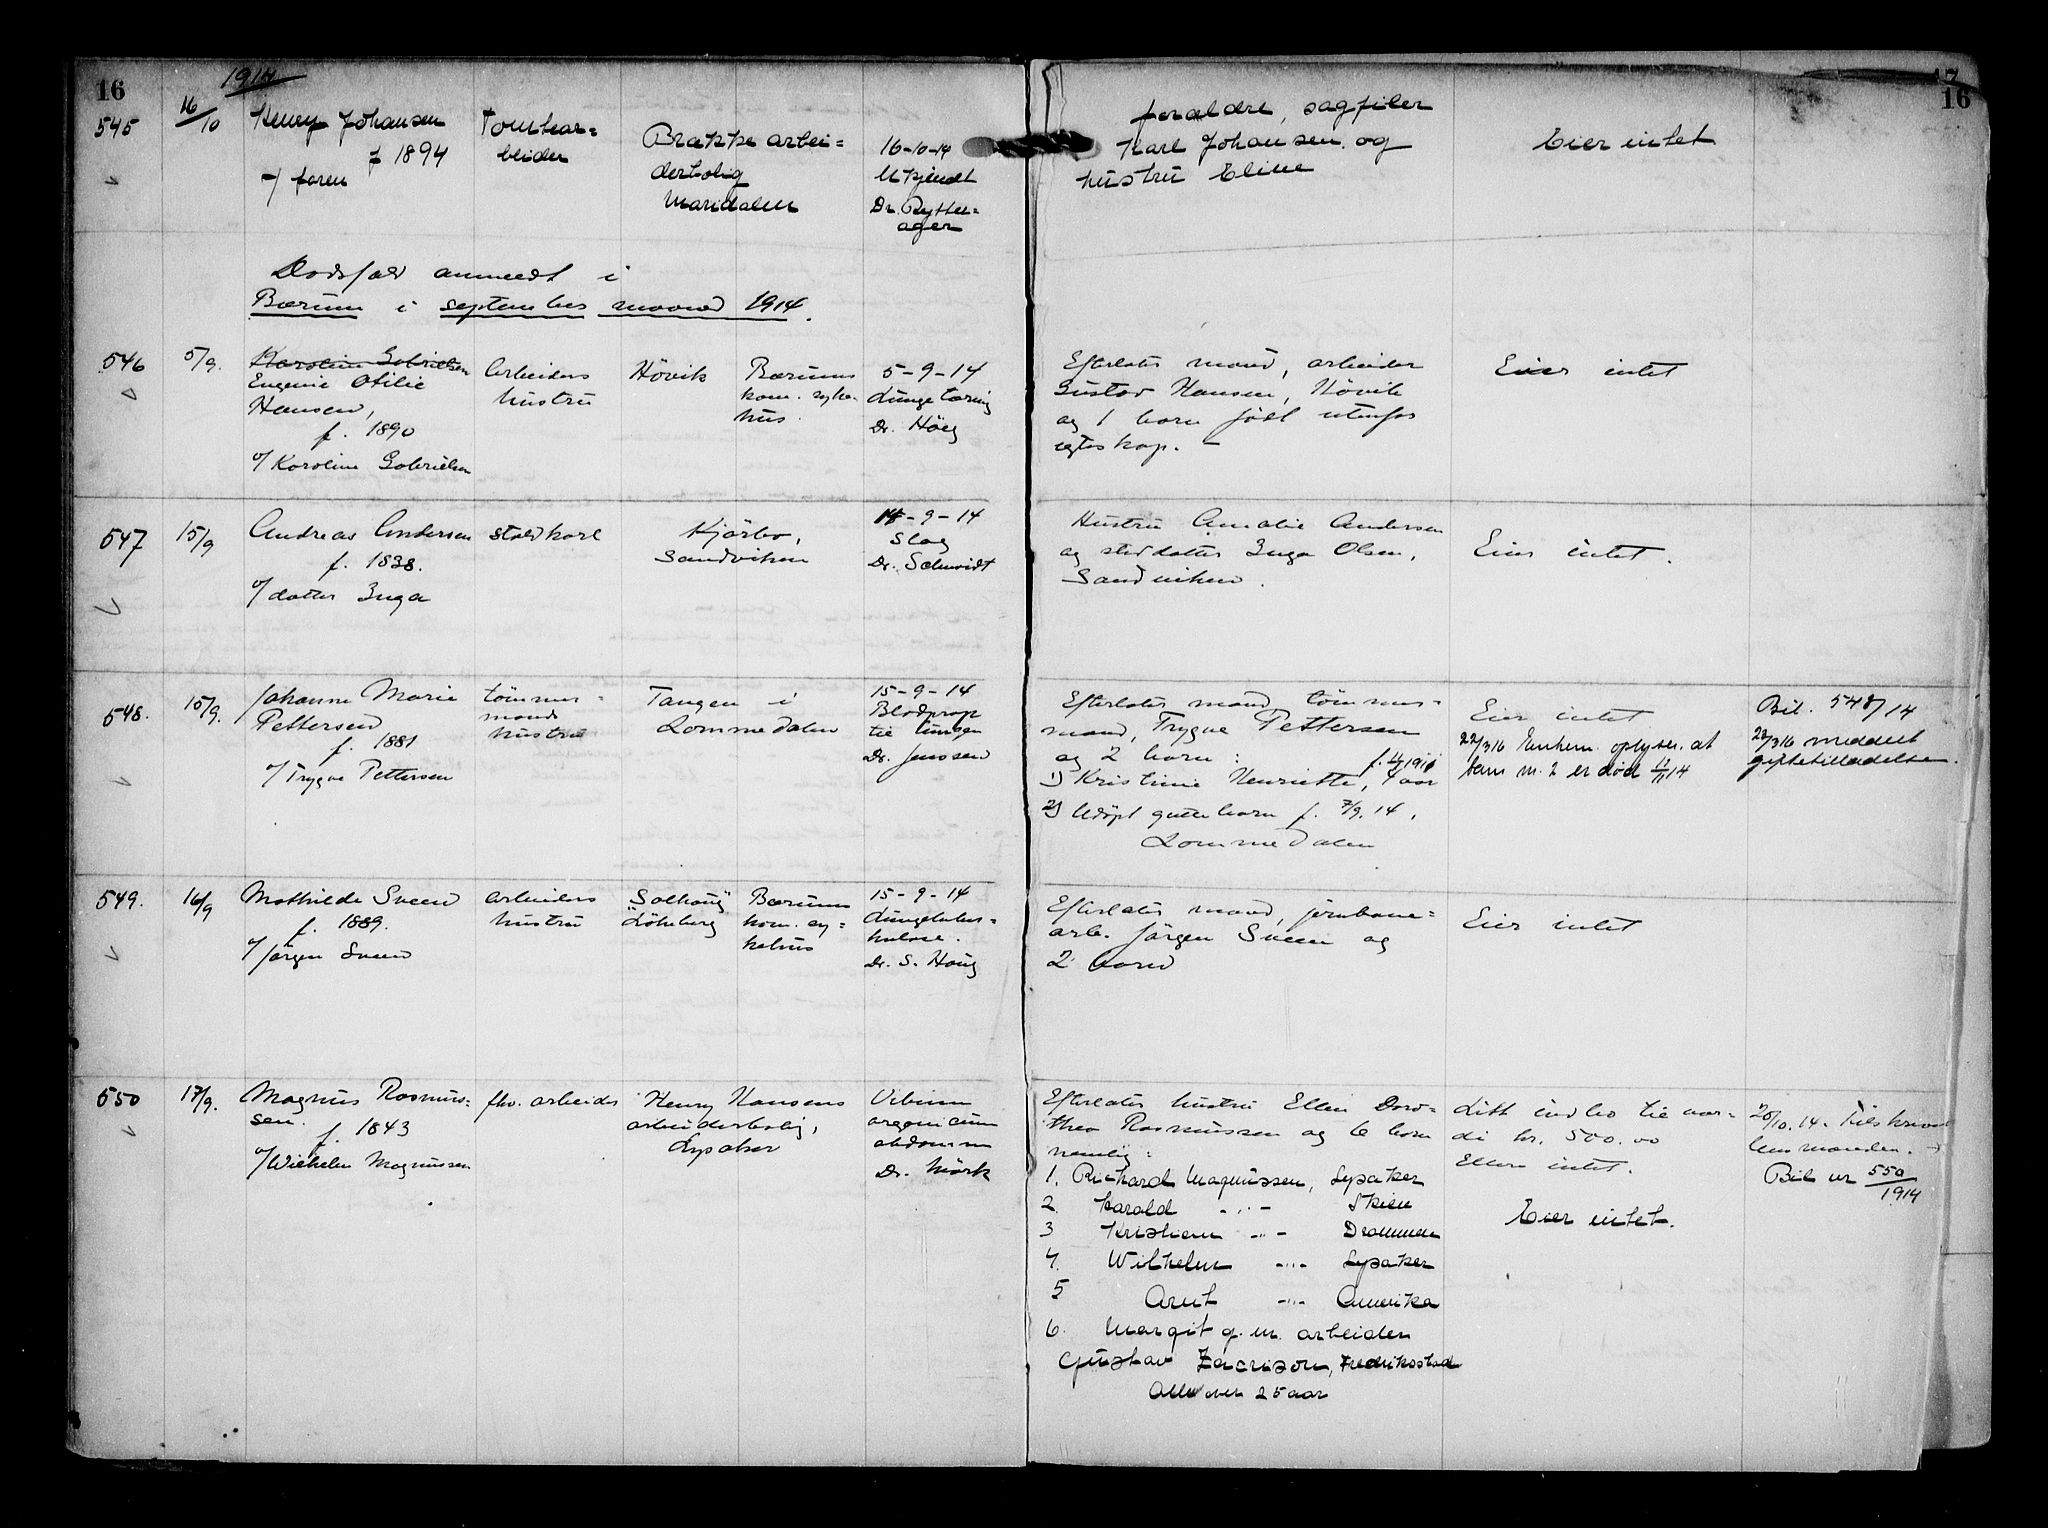 16
1914
545
16/10
Henry Johansen
f 1894
o/ faren
Tomtear=
beider
Brakke arbei=
derbolig
Maridalen
16-10-14
Ukjendt
Dr. Rytter=
ager
17
16
foreldre, sagfiler
Karl Johansen og
hustru Eline
Eier intet
Dødsfald anmeldt i
Bærum i september maaned 1914.
546
5/9.
Karoline Gabrielsen
Eugenie Otilie
Hansen,
f. 1890
o/ Karoline Gabrielsen
Arbeiders
hustru
Hövik
Bærums
kom. syke-
hus
5-9-14
Lungetæring
Dr. Höeg
Efterlater mand, arbeider
Gustav Hansen, Hövik
og 1 barn född utenfor
egteskap. -
Eier intet
547
15/9
Andreas Andersen
f. 1838.
o/ datter Inga
staldkarl
Kjörbo,
Sandviken
14-9-14
Slag
Dr. Schmidt
Hustru Amalie Andersen
og steddatter Inga Olsen,
Sandviken.
Eier intet.
548.
15/9.
Johanne Marie
Pettersen
f. 1881
o/ Trygve Pettersen
tömmer=
mands
hustru
Tangen i
Lommedalen
15-9-14
Blodprop
til lungen
Dr. Jenssen
Efterlater mand tömmer=
mand, Trygve Pettersen
og 2 barn:
1) Kristine Henriette, 4 aar
2) Udöpt guttebarn f. 7/9.14,
Lommedalen
Eier intet
22/3 16 Enkem. oplyser at
barn nr. 2 er död 14
Bil. 548/14
22/3 16 meddelt
giftetilladelse.
549.
16/9
Mathilde Sveen
f. 1889.
o/ Jörgen Sveen
arbeiders
hustru
Solhaug
Lökeberg
Bærums
kom. sy=
kehus
15-9-14
Lungetuber=
kulose.
Dr. S. Höeg
Efterlater mand, jernbane=
arb. Jörgen Sveen og
2 barn
Eier intet
550
17/9.
Magnus Rasmus=
sen.
f. 1843
o/ Wilhelm Magnussen
fhv. arbeider
Henry Hansens
arbeiderbolig,
Lysaker
Vitium
organicum
abdomin
Dr. Mörk
Efterlater hustru Ellen Doro=
thea Rasmussen og 6 barn
nemlig:
1. Richard Magnussen, Lysaker
2. Harald -"- Skien
3 Kristian -"- Drammen
4. Wilhelm -"- Lysaker
5 Arnt -"- Amerika
6. Margit g. m. arbeider
Gustav Zacrison, Fredrikstad
Alle over 25 aar
Litt indbo til vær=
di kr. 500.00
Ellers intet.
Eier intet.
20/10.14. Tilskrevet
lensmanden.
Bil nr 550/1914